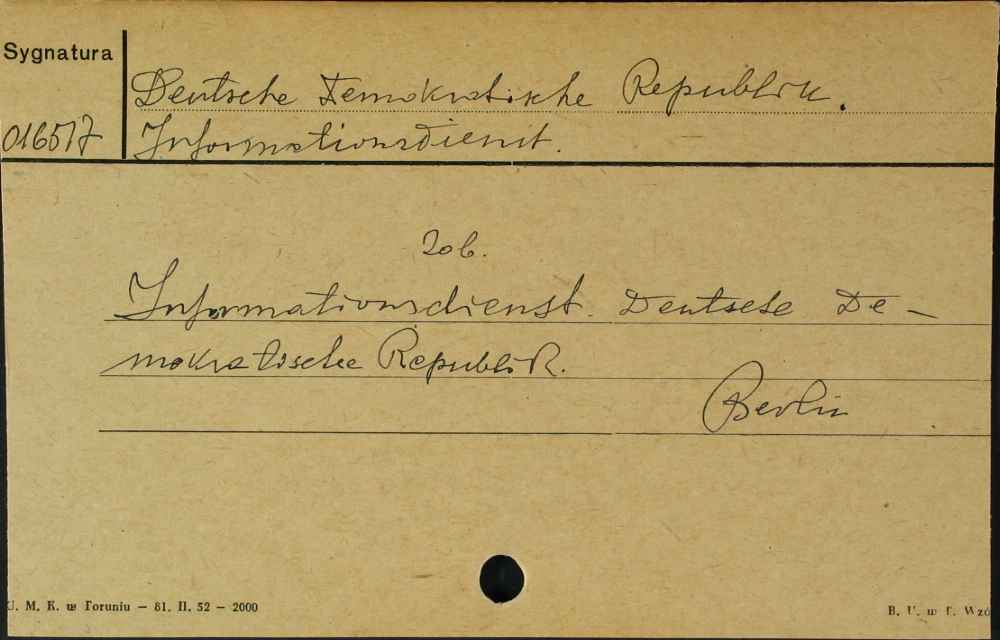 Sygnatura
Deutsche Demokratische Republik.
016517 Informationsdienst.
Zob.
Informationsdienst. Deutsche De-
mokratische Republik.
Berlin
U. M. K. w Toruniu – 81. II. 52 – 2000
B. U. w T. Wzó